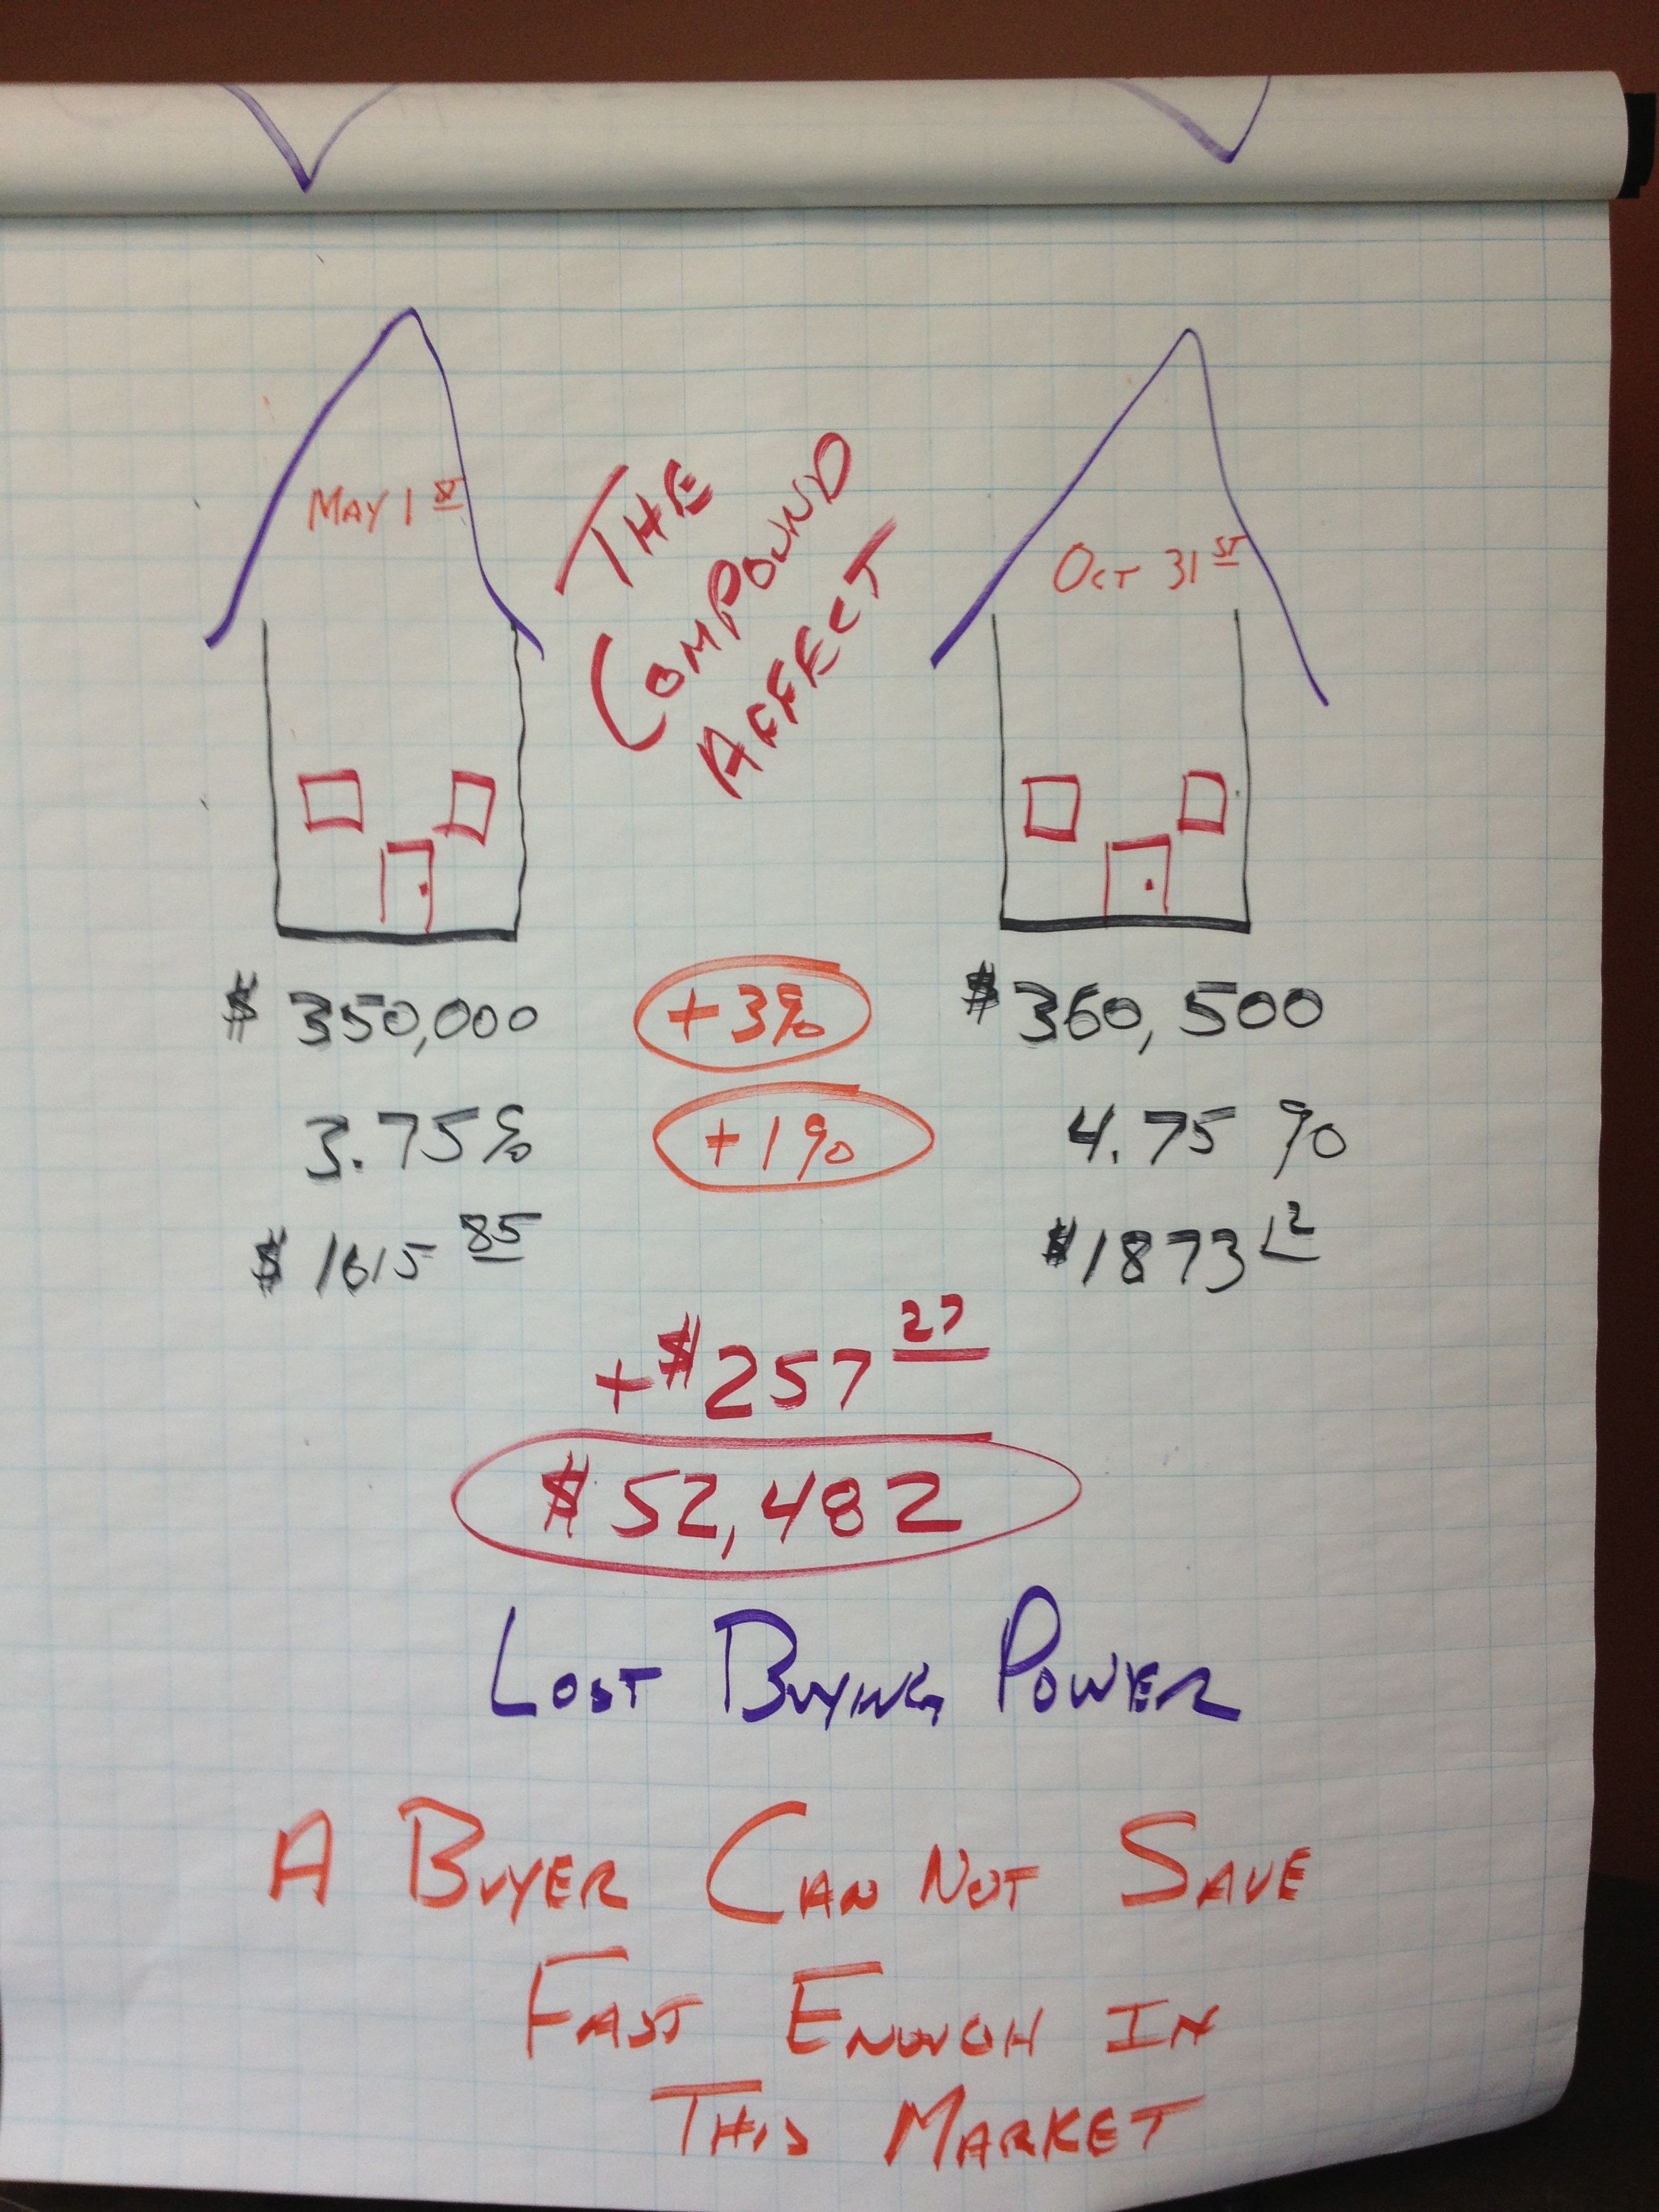 MAY 1ST
THE
COMPOUND
AFFECT
OCT 31ST
$ 350,000 +3% $ 360,500
3.75% +1% 4.75 %
$ 1615 85 $1873 12
+$257 27
$ 52,482
LOST BUYING POWER
A BUYER CAN NOT SAVE
FAST ENOUGH IN
THIS MARKET